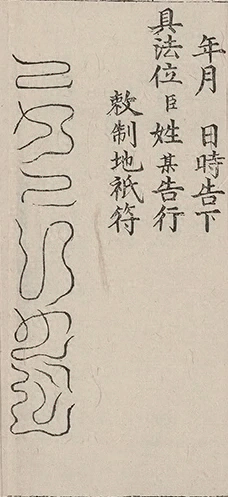 年月　日時告下
具法位臣姓某告行
敕制地祇符